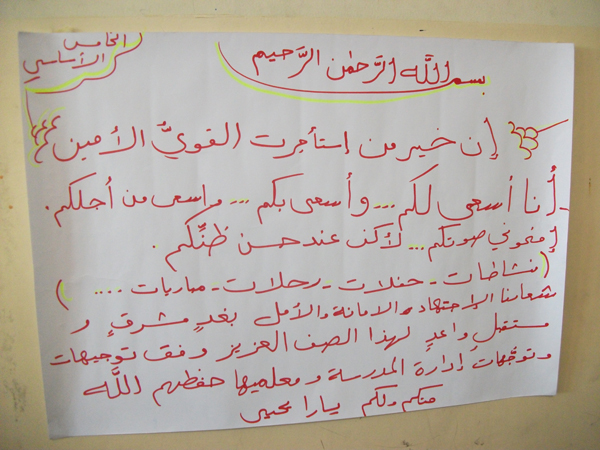 الخامس
الأساسي
بسم اللّٰه الرَّحمٰن الرَّحيم
إن خير من إستأجرت القويُّ الأمين
أنا أسعى لكم... وأسعى بكم ... واسعى من أجلكم.
إمنحوني صوتكم... لأكن عند حسن ظنِّكم.
(نشاطات - حفلات - رحلات - مباريات ....)
شعارنا الإجتهاد والامانة والأمل بغدٍ مشرقٍ و
مستقبل واعدٍ لهذا الصف العزيز وفق توجيهات
وتوجّهات إدارة المدرسة ومعلميها حفظهم اللّٰه
منكم ولكم يارا يحيى